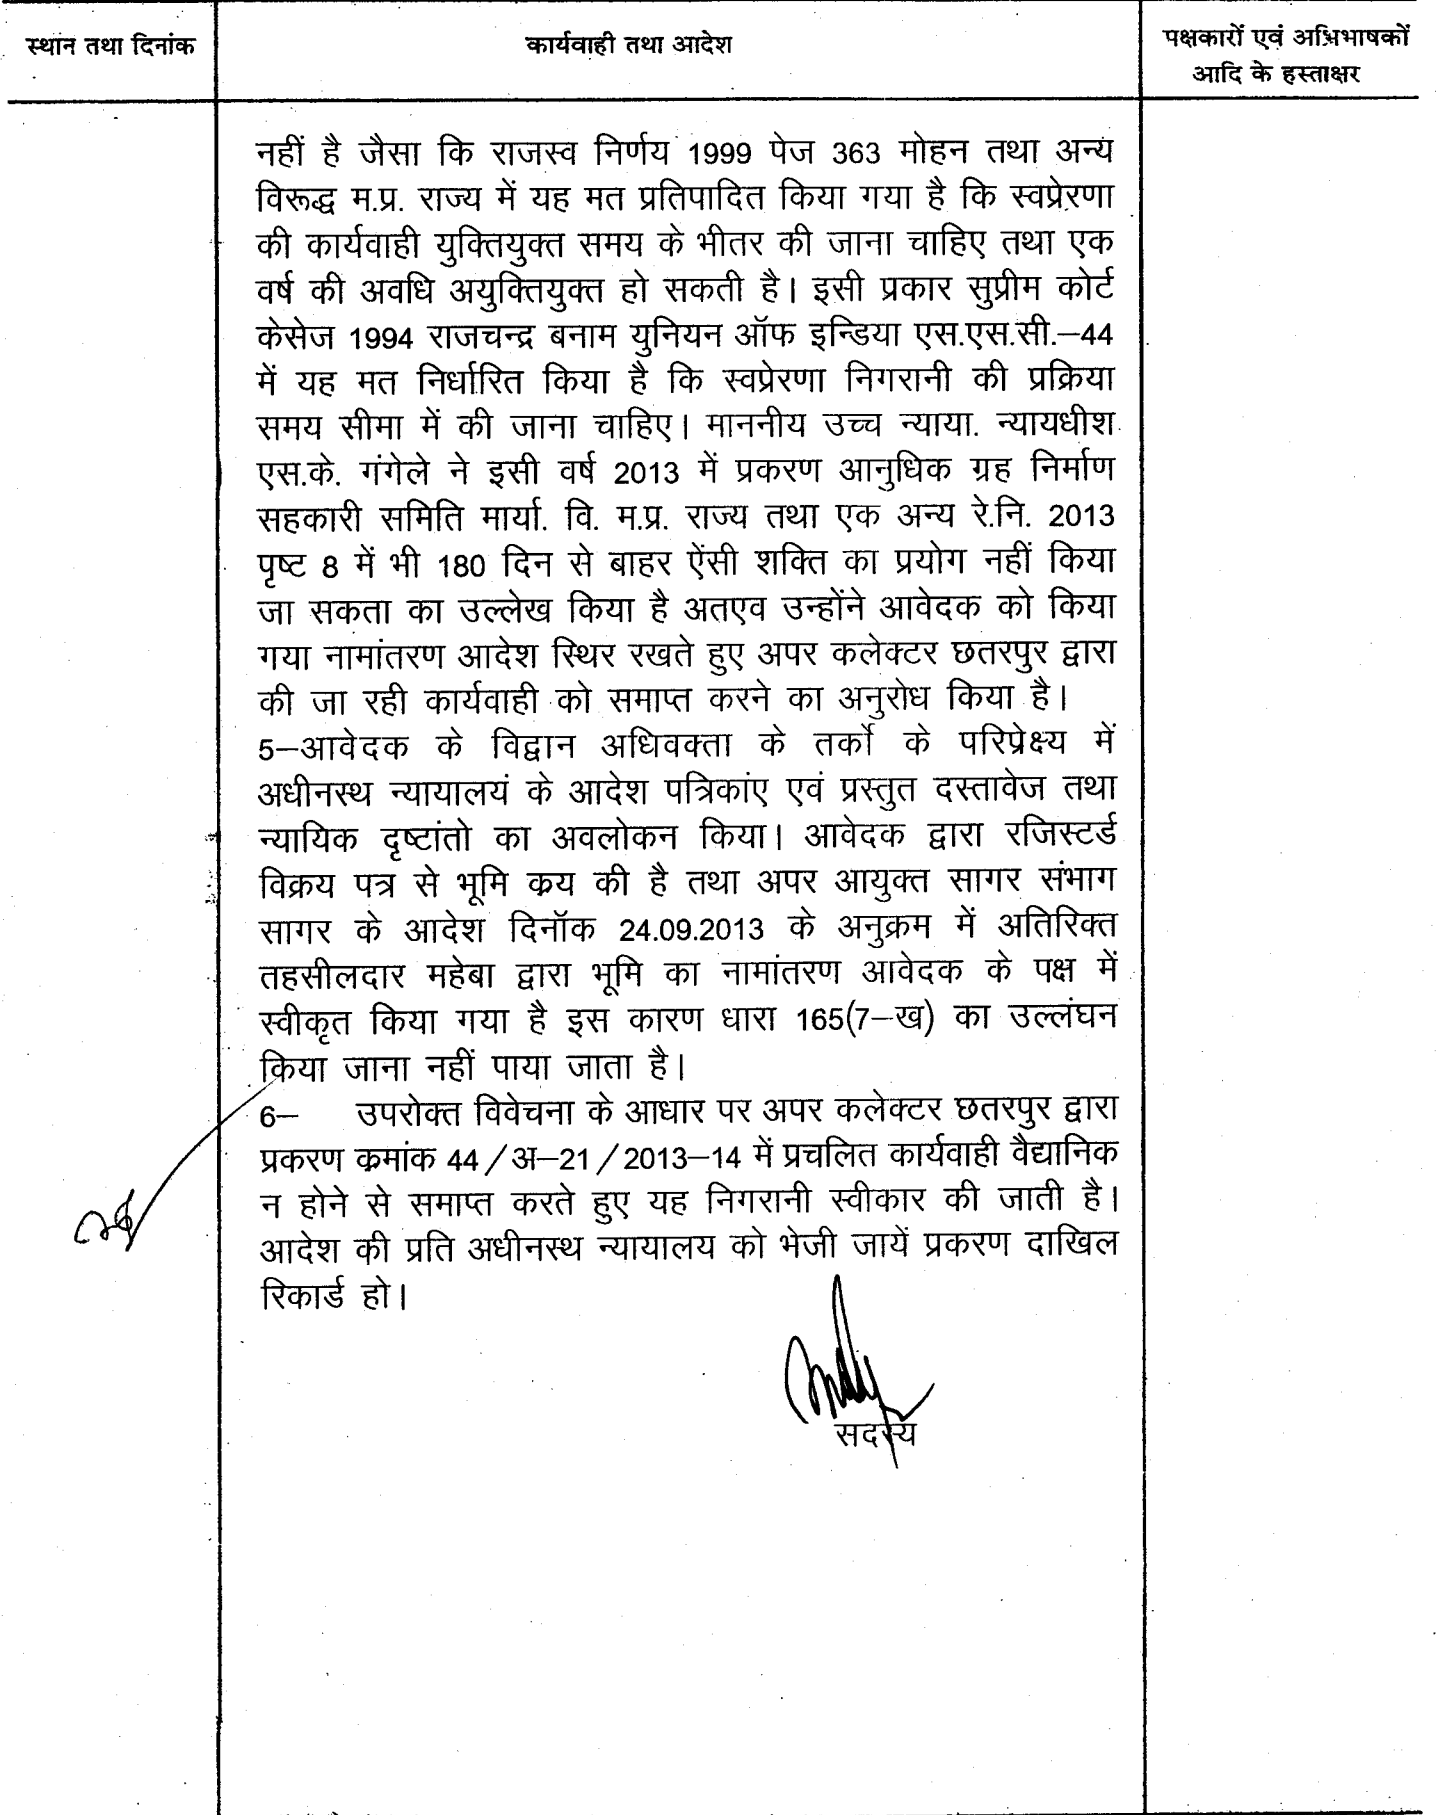 स्थान तथा दिनांक
कार्यवाही तथा आदेश
पक्षकारों एवं अभिभाषकों
आदि के हस्ताक्षर
नहीं है जैसा कि राजस्व निर्णय 1999 पेज 363 मोहन तथा अन्य
विरूद्ध म.प्र. राज्य में यह मत प्रतिपादित किया गया है कि स्वप्रेरणा
की कार्यवाही युक्तियुक्त समय के भीतर की जाना चाहिए तथा एक
वर्ष की अवधि अयुक्तियुक्त हो सकती है। इसी प्रकार सुप्रीम कोर्ट
केसेज 1994 राजचन्द्र बनाम युनियन ऑफ इन्डिया एस.एस.सी.–44
में यह मत निर्धारित किया है कि स्वप्रेरणा निगरानी की प्रक्रिया
समय सीमा में की जाना चाहिए। माननीय उच्च न्याया. न्यायधीश
एस.के. गंगेले ने इसी वर्ष 2013 में प्रकरण आनुधिक ग्रह निर्माण
सहकारी समिति मार्या. वि. म.प्र. राज्य तथा एक अन्य रे.नि. 2013
पृष्ट 8 में भी 180 दिन से बाहर ऐंसी शक्ति का प्रयोग नहीं किया
जा सकता का उल्लेख किया है अतएव उन्होंने आवेदक को किया
गया नामांतरण आदेश स्थिर रखते हुए अपर कलेक्टर छतरपुर द्वारा
की जा रही कार्यवाही को समाप्त करने का अनुरोध किया है।
5–आवेदक के विद्वान अधिवक्ता के तर्को के परिप्रेक्ष्य में
अधीनस्थ न्यायालयं के आदेश पत्रिकांए एवं प्रस्तुत दस्तावेज तथा
न्यायिक दृष्टांतो का अवलोकन किया। आवेदक द्वारा रजिस्टर्ड
विक्रय पत्र से भूमि कय की है तथा अपर आयुक्त सागर संभाग
सागर के आदेश दिनॉक 24.09.2013 के अनुक्रम में अतिरिक्त
तहसीलदार महेबा द्वारा भूमि का नामांतरण आवेदक के पक्ष में
स्वीकृत किया गया है इस कारण धारा 165(7–ख) का उल्लंघन
किया जाना नहीं पाया जाता है।
6– उपरोक्त विवेचना के आधार पर अपर कलेक्टर छतरपुर द्वारा
प्रकरण कमांक 44/अ–21/2013–14 में प्रचलित कार्यवाही वैद्यानिक
न होने से समाप्त करते हुए यह निगरानी स्वीकार की जाती है।
आदेश की प्रति अधीनस्थ न्यायालय को भेजी जायें प्रकरण दाखिल
रिकार्ड हो।
सदस्य